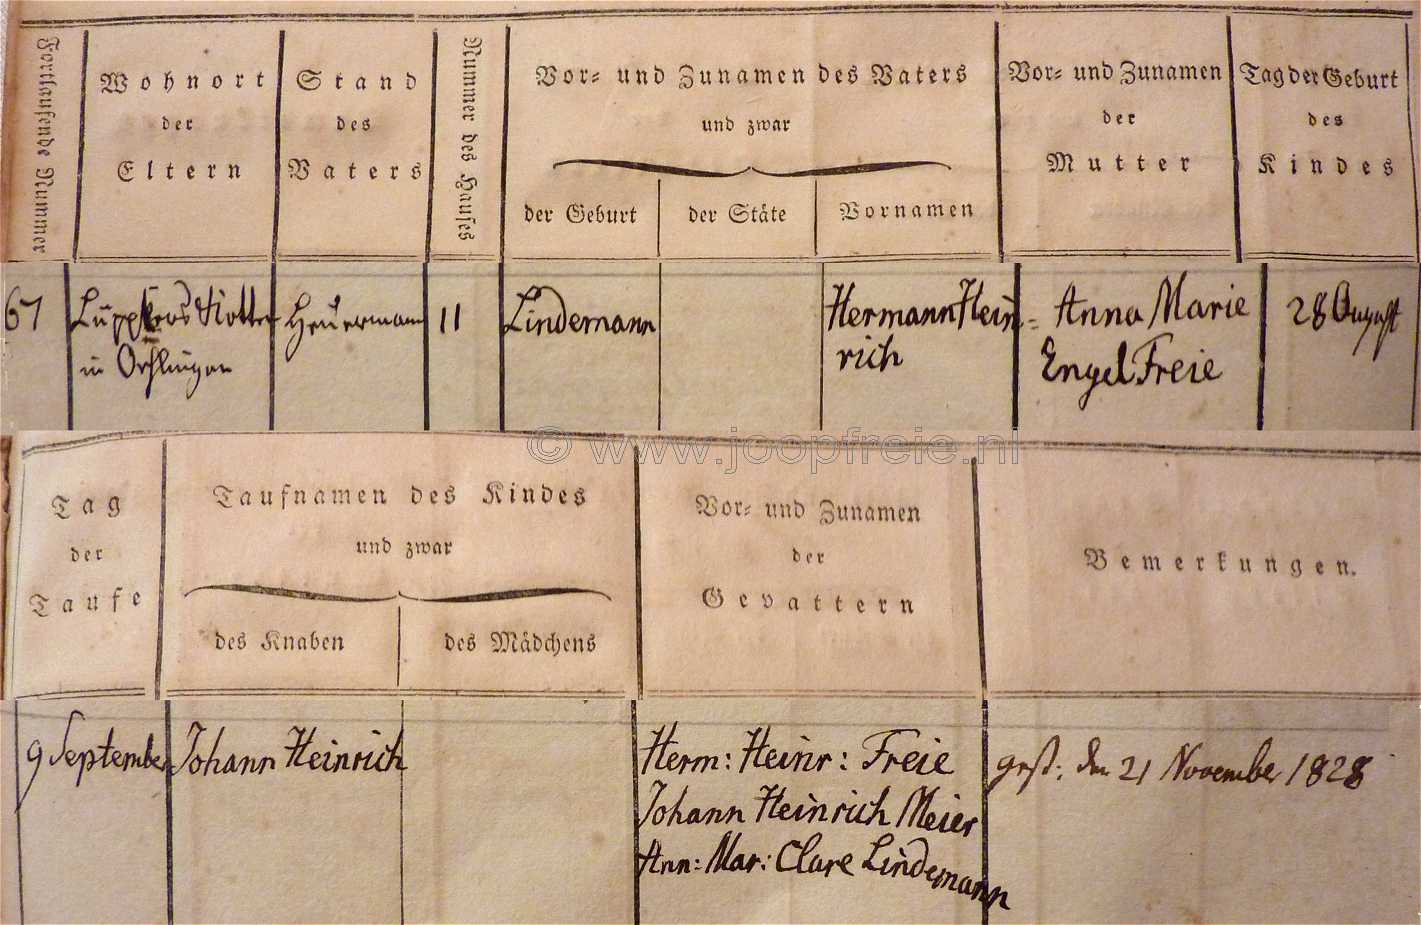 Fortlaufende Nummer
Wohnort
der
Eltern
Stand
des
Vaters
Nummer des Hauses
Vor- und Zunamen des Vaters
und zwar
der Geburt
der Stäte
Vornamen
Vor- und Zunamen
der
Mutter
Tag der Geburt
des
Kindes
67
Kotten
in Oesslingen
Heuermann
11
Lindemann
Hermann Hein-
rich
Anna Marie
Engel Freie
28 August
© www.joopfreie.nl
Tag
der
Taufe
Taufnamen des Kindes
und zwar
des Knaben
des Mädchens
Vor- und Zunamen
der
Gevattern
Bemerkungen.
9 September
Johann Heinrich
Herm: Heinr: Freie
Johann Heinrich Meier
Ann: Mar: Clare Lindemann
gest: den 21 November 1828